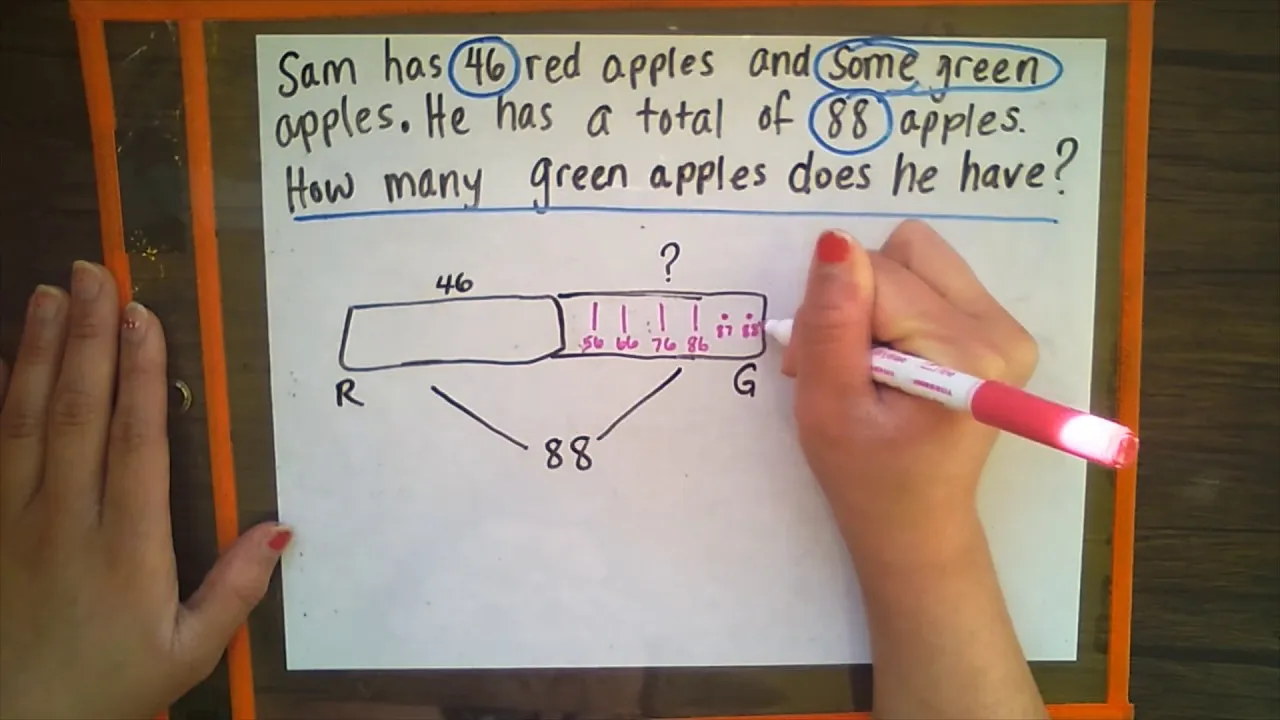 Sam has 46 red apples and some green
apples. He has a total of 88 apples.
How many green apples does he have?
46 ?
56 66 76 86 87 88
R G
88